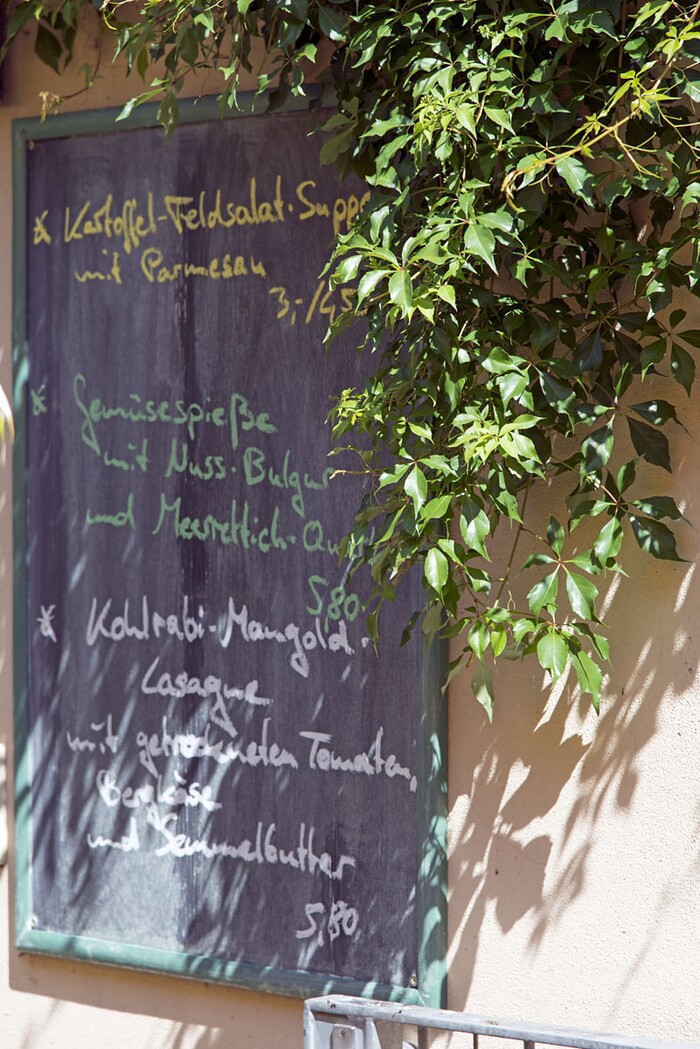 * Kartoffel-Feldsalat-Supp
mit Parmesan
3,-/4,5
* Gemüsespieße
mit Nuss-Bulgur
und Meerrettich-Qu
5,80
* Kohlrabi-Mangold-
Lasagne
mit getrockneten Tomaten,
Bergkäse
und Semmelbutter
5,80